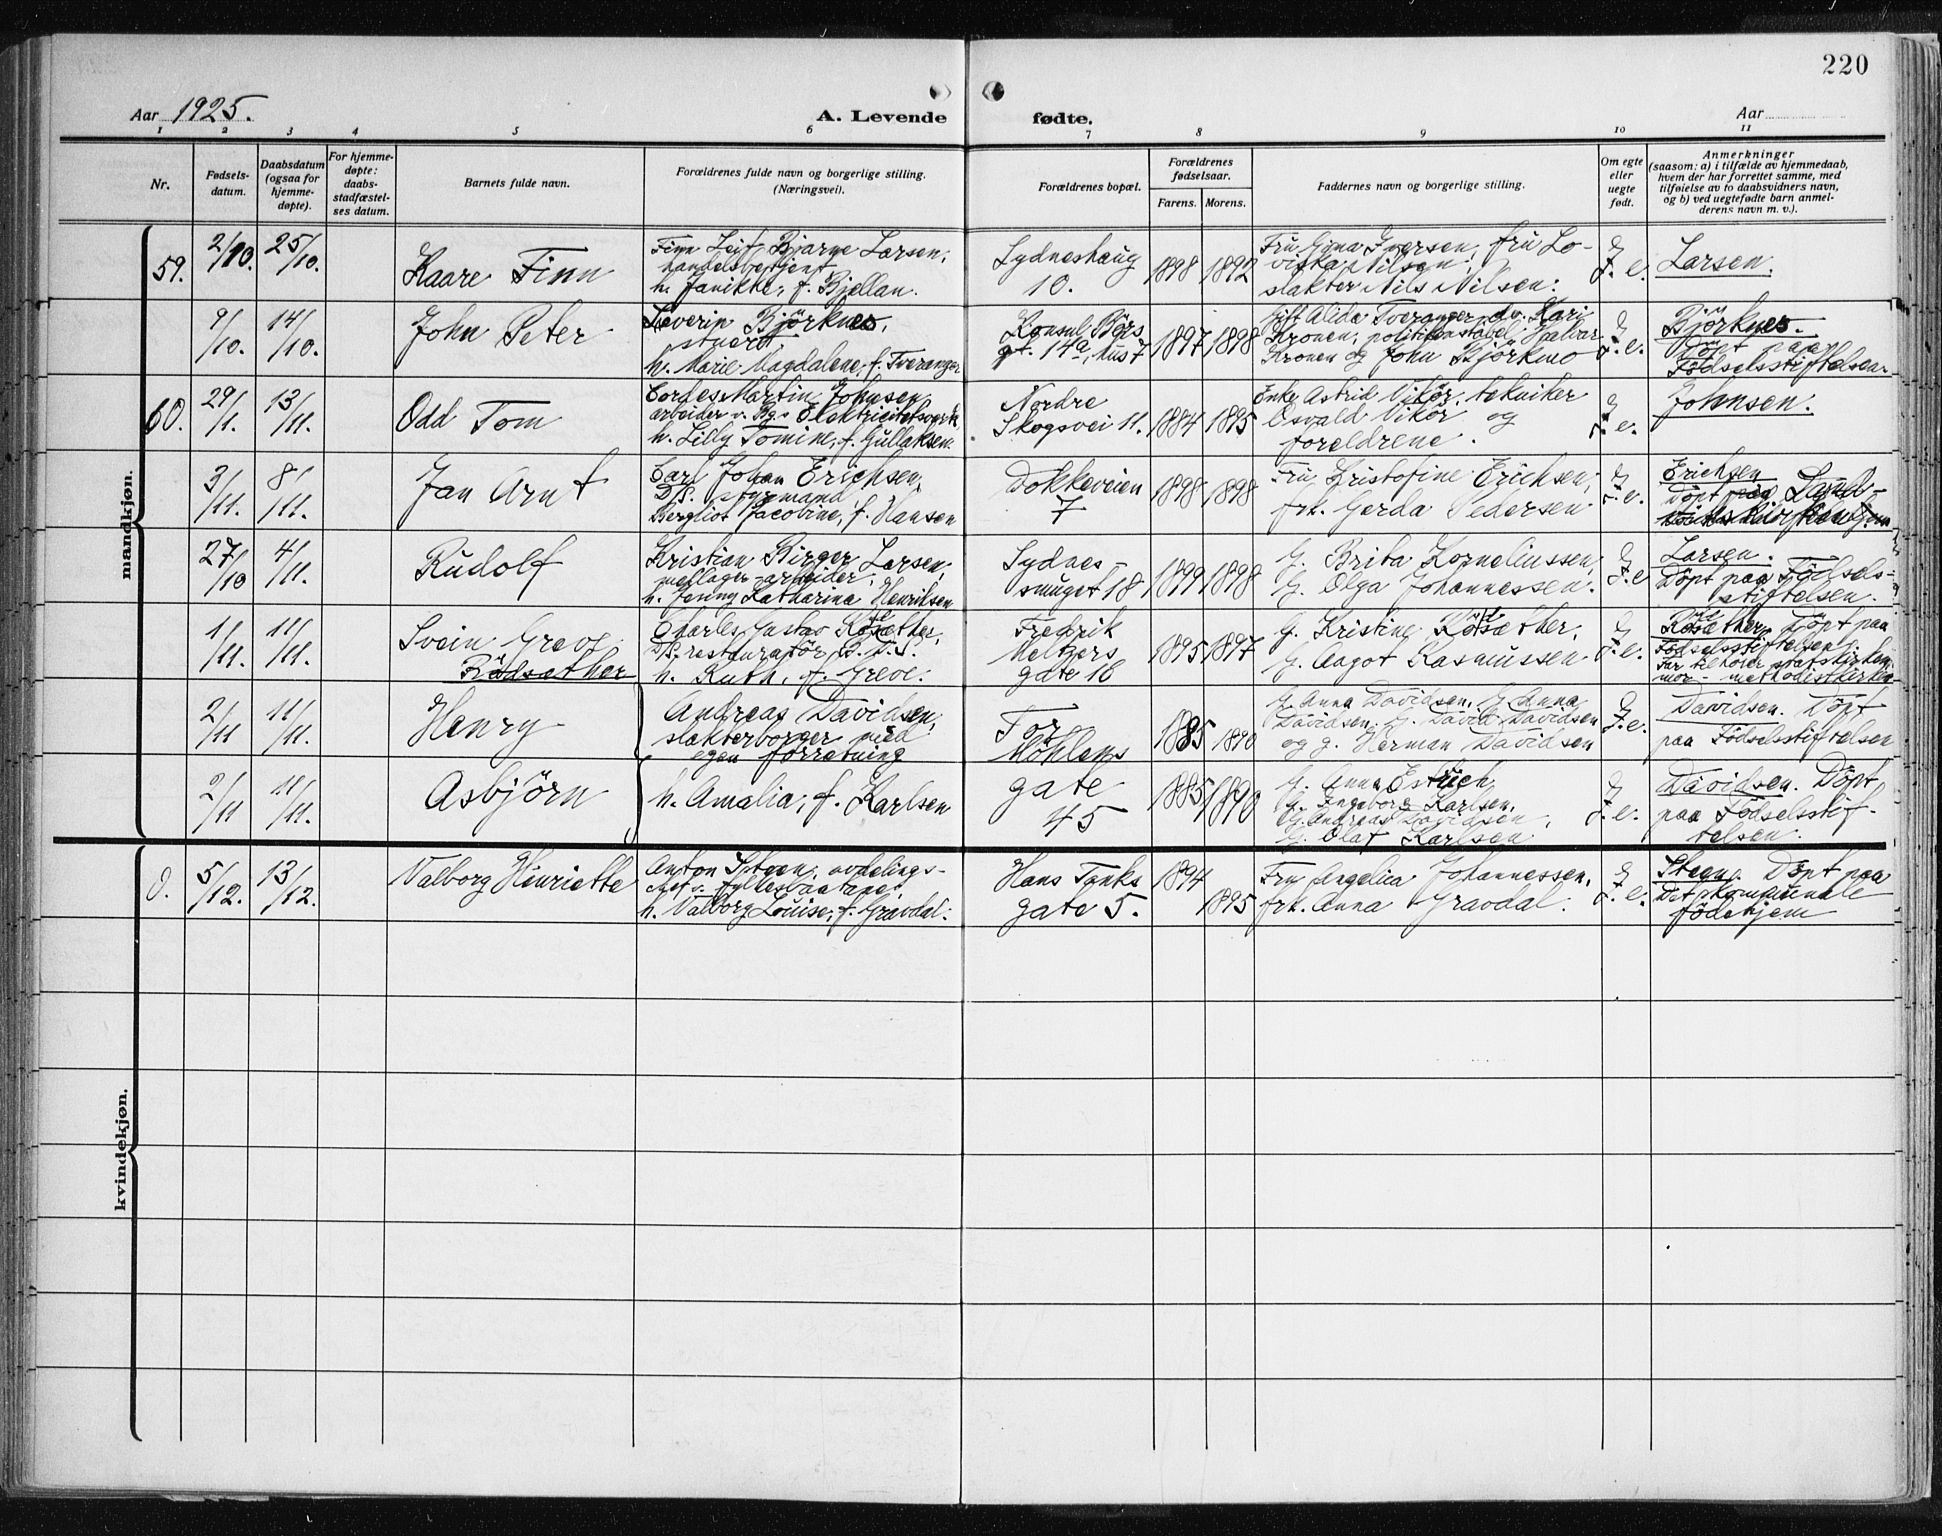 220
Aar 1925.
A. Levende
fødte.
Aar
1 2 3 4 5 6 7 8 9 10 11
Nr.
Fødsels-
datum.
Daabsdatum
(ogsaa for
hjemme-
døpte).
For hjemme-
døpte:
daabs-
stadfæstel-
ses datum.
Barnets fulde navn.
Forældrenes fulde navn og borgerlige stilling.
(Næringsvei).
Forældrenes bopæl.
Forældrenes
fødselsaar.
Farens. Morens.
Faddernes navn og borgerlige stilling.
Om egte
eller
uegte
født.
Anmerkninger
(saasom: a) i tilfælde av hjemmedaab,
hvem der har forrettet samme, med
tilføielse av to daabsvidners navn,
og b) ved uegtefødte barn anmel-
derens navn m. v.).
mandkjøn.
59.
2/10.
25/10.
Kaare Finn
Finn Leif Bjarne Larsen,
handelsbetjent
h. Janikke, f. Bjellan.
Sydneshaug
10.
1898 1892
Fru Gina Iversen, fru Lo-
viska Nilsen,
slakter Nils Nilsen.
e.
Larsen.
9/10.
14/10.
John Peter
Severin Björknes,
stuert,
h. Marie Magdalene, f. Tveranger
Konsul Börs
gt. 14a, hus 7
1897 1898
Gift Alida Tveranger, do. Kari
Kronen, politikonstabel Halvar
Kronen og John Björkmo
e.
Björknes.
Döpt paa
Födselsstiftelsen.
60.
29/1.
13/11.
Odd Tom
Cordes Martin Johnsen
arbeider v. Bgs Elektricitetsverk
h. Lilly Tomine, f. Gullaksen.
Nordre
Skogsvei 11.
1884 1895
Enke Astrid Vikör, tekniker
Osvald Vikör og
foreldrene.
e.
Johnsen.
3/11.
8/11.
Jan Arnt
Carl Johan Erichsen,
D/S. styrmand
Bergliot Jacobine, f. Hansen
Dokkeveien
7
1898 1898
Fru Kristofine Erichsen,
frk. Gerda Pedersen
e.
Erichsen
Döpt paa
27/10
4/11.
Rudolf
Kristian Birger Larsen,
arbeider,
h. Katharina Henriksen
Sydnes-
smuget 18
1899 1898
G. Brita Korneliussen,
G. Olga Johannessen.
e
Larsen.
Döpt paa Födsels-
stiftelsen.
1/11.
11/11.
Svein Greve
Rödsæther
Charles Gustav
D/S. restauratör B.D.S.
h. Ruth, f. Greve.
Fredrik
Meltzers
gate 18
1895 1897
G. Kristine
G. Aagot Rasmussen
e.
Döpt paa
Födselsstiftelsen.
Far tilhörer statskirken,
mor - methodistkirken
2/11
11/11.
Henry
Andreas Davidsen,
slakterborger med
egen forretning
Tor
Möhlens
1885 1890
G. Anna Davidsen, G. Anna
Davidsen, G. David Davidsen
og g. Herman Davidsen
e.
Davidsen. Döpt
paa Födselsstiftelsen
2/11
11/11.
Asbjörn
h. Amalia, f. Karlsen
gate
45
1885 1890
G. Anna
G. Ingeborg Karlsen,
G. Andreas Davidsen,
G. Olaf Karlsen
e.
Davidsen. Döpt
paa Födselsstif-
telsen.
kvindekjøn.
0.
5/12.
13/12.
Valborg Henriette
Anton Steen, avdelings-
chef v. fyllesbaatene,
h. Valborg Louise, f. Gravdal.
Hans Tanks
gate 5.
1894
1895
Fru Angelia Johannessen,
frk. Anna Gravdal.
e.
Steen. Döpt paa
Det kommunale
födehjem